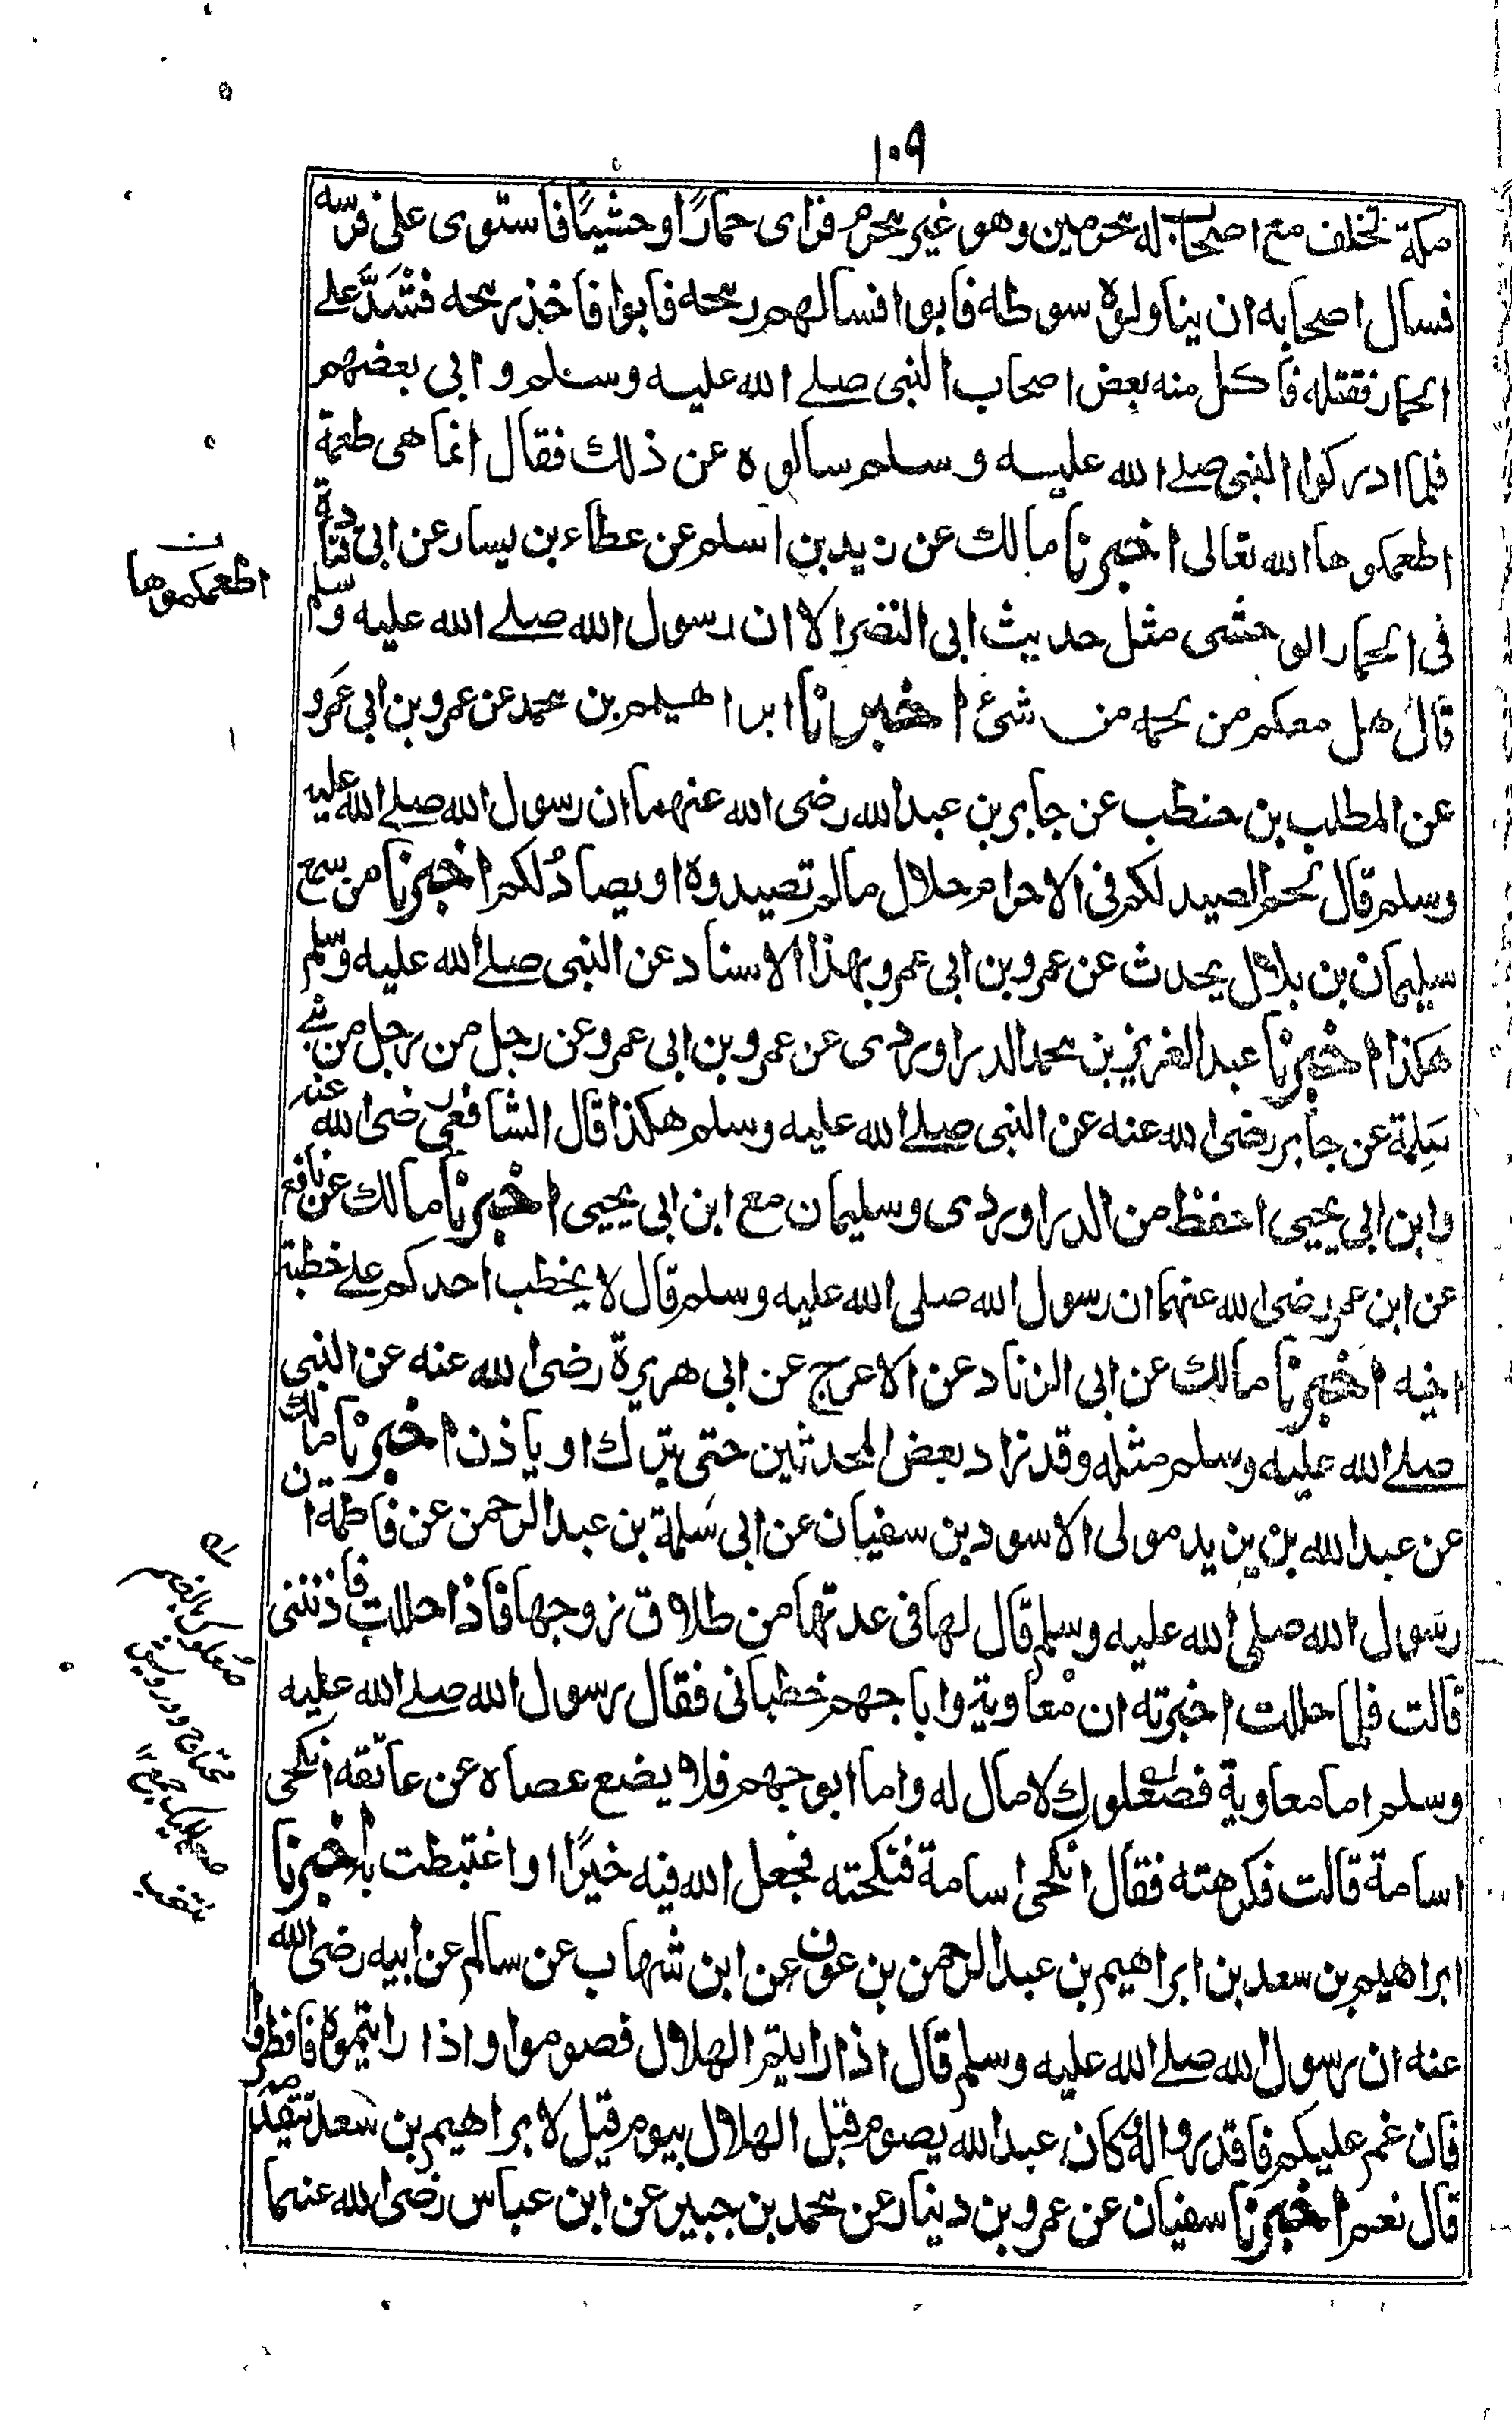 ١٠٩
مكة تخلف مع اصحاب له محرمين وهو غير محرم فراى حمارًا وحشيًا فاستوى على فرسه
فسال اصحابه ان يناولوه سوطه فابوا فسالهم رمحه فابوا فاخذ رمحه فشَدَّ علے
الحمار فقتله فاكل منه بعض اصحاب النبى صلے الله عليه وسلم وابى بعضهم
فلما ادركوا النبى صلے الله عليه وسلم سالوه عن ذلك فقال انما هى طعمة
اطعمكوها الله تعالى اخبرنا مالك عن زيد بن اسلم عن عطاء بن يسار عن ابى قتادة
ن
اطعمكموها
فى الحمار الوحشى مثل حديث ابى النضر الا ان رسول الله صلے الله عليه وسلم
قال هل معكم من لحمه من شئ اخبرنا ابراهيم بن محمد عن عمرو بن ابى عمرو
عن المطلب بن حنطب عن جابر بن عبد الله رضى الله عنهما ان رسول الله صلے الله عليه
وسلم قال لحم الصيد لكم فى الاحرام حلال مالم تصيدوه او يصادُ لكم اخبرنا من سمع
سليمان بن بلال يحدث عن عمرو بن ابى عمرو بهذا الاسناد عن النبى صلے الله عليه وسلم
هكذا اخبرنا عبد العزيز بن محمد الدراوردى عن عمرو بن ابى عمرو عن رجل من رجل من بنے
سَلِمة عن جابر رضى الله عنه عن النبى صلے الله عليه وسلم هكذا قال الشافعى رضى الله عنه
وابن ابى يحيى احفظ من الدراوردى وسليمان مع ابن ابى يحيى اخبرنا مالك عن نافع
عن ابن عمر رضى الله عنهما ان رسول الله صلى الله عليه وسلم قال لا يخطب احدكم علے خطبة
اخيه اخبرنا مالك عن ابى الزناد عن الاعرج عن ابى هريرة رضى الله عنه عن النبى
صلے الله عليه وسلم مثله وقد زاد بعض المحدثين حتى يترك او ياذن اخبرنا مالك
عن عبد الله بن يزيد مولى الاسود بن سفيان عن ابى سَلمة بن عبد الرحمن عن فاطمة ان
رسول الله صلى الله عليه وسلم قال لها فى عدتها من طلاق زوجها فاذا حللت فاذننى
قالت فلما حللت اخبرته ان معاوية وابا جهم خطبانى فقال رسول الله صلے الله عليه
وسلم اما معاوية فصعلوك لا مال له واما ابو جهم فلا يضع عصاه عن عاتقه انكحى
اسامة قالت فكرهته فقال انكحى اسامة فنكحته فجعل الله فيه خيرًا واغتبطت به اخبرنا
ابراهيم بن سعد بن ابراهيم بن عبد الرحمن بن عوف عن ابن شهاب عن سالم عن ابيه رضى الله
عنه ان رسول الله صلے الله عليه وسلم قال اذا رايتم الهلال فصوموا واذا رايتموه فافطروا
فان غم عليكم فاقدروا له وكان عبد الله يصوم قبل الهلال بيوم قيل لابراهيم بن سعد يتقدمه
قال نعم اخبرنا سفيان عن عمرو بن دينار عن محمد بن جبير عن ابن عباس رضى الله عنهما
صعلوك بالضم
محتاج ودرويش
صعاليك جمع ١٢
منتخب